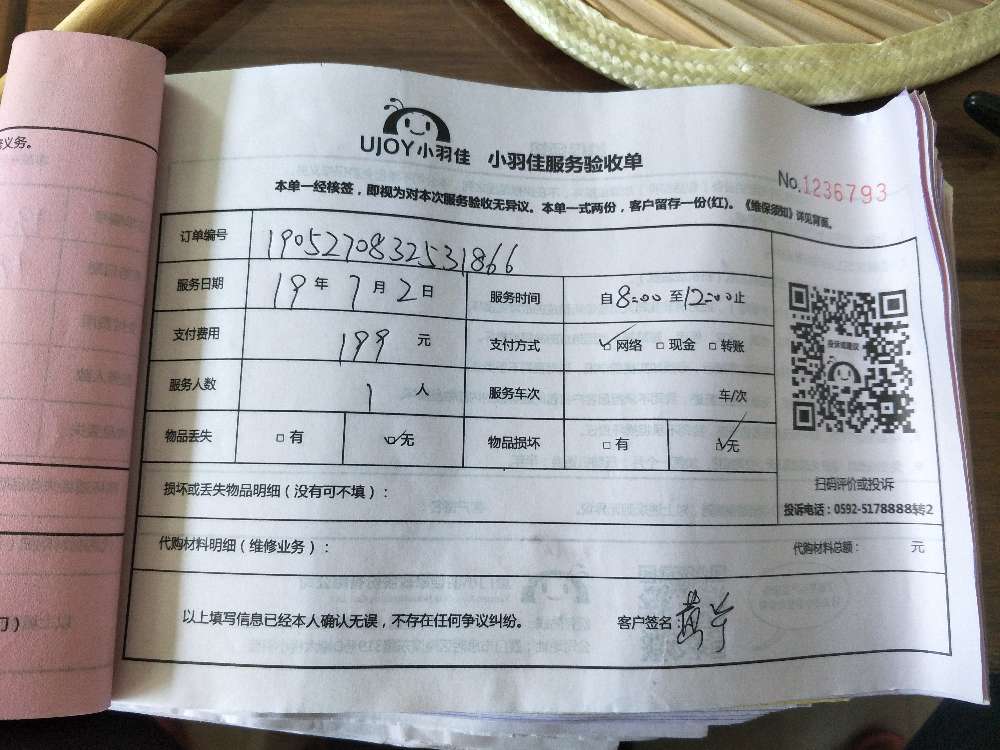 义务。
UJOY小羽佳 小羽佳服务验收单
No.1236793
本单一经核签，即视为对本次服务验收无异议。本单一式两份，客户留存一份(红)。《维保须知》详见背面。
订单编号 1905270832531866
服务日期 19年7月2日 服务时间 自8:00至12:00止
支付费用 199元 支付方式 ☑网络 □现金 □转账
服务人数 1人 服务车次 车/次
物品丢失 □有 ☑无 物品损坏 □有 ☑无
投诉或建议
扫码评价或投诉
投诉电话：0592-5178888转2
损坏或丢失物品明细（没有可不填）：
代购材料明细（维修业务）： 代购材料总额： 元
以上填写信息已经本人确认无误，不存在任何争议纠纷。 客户签名